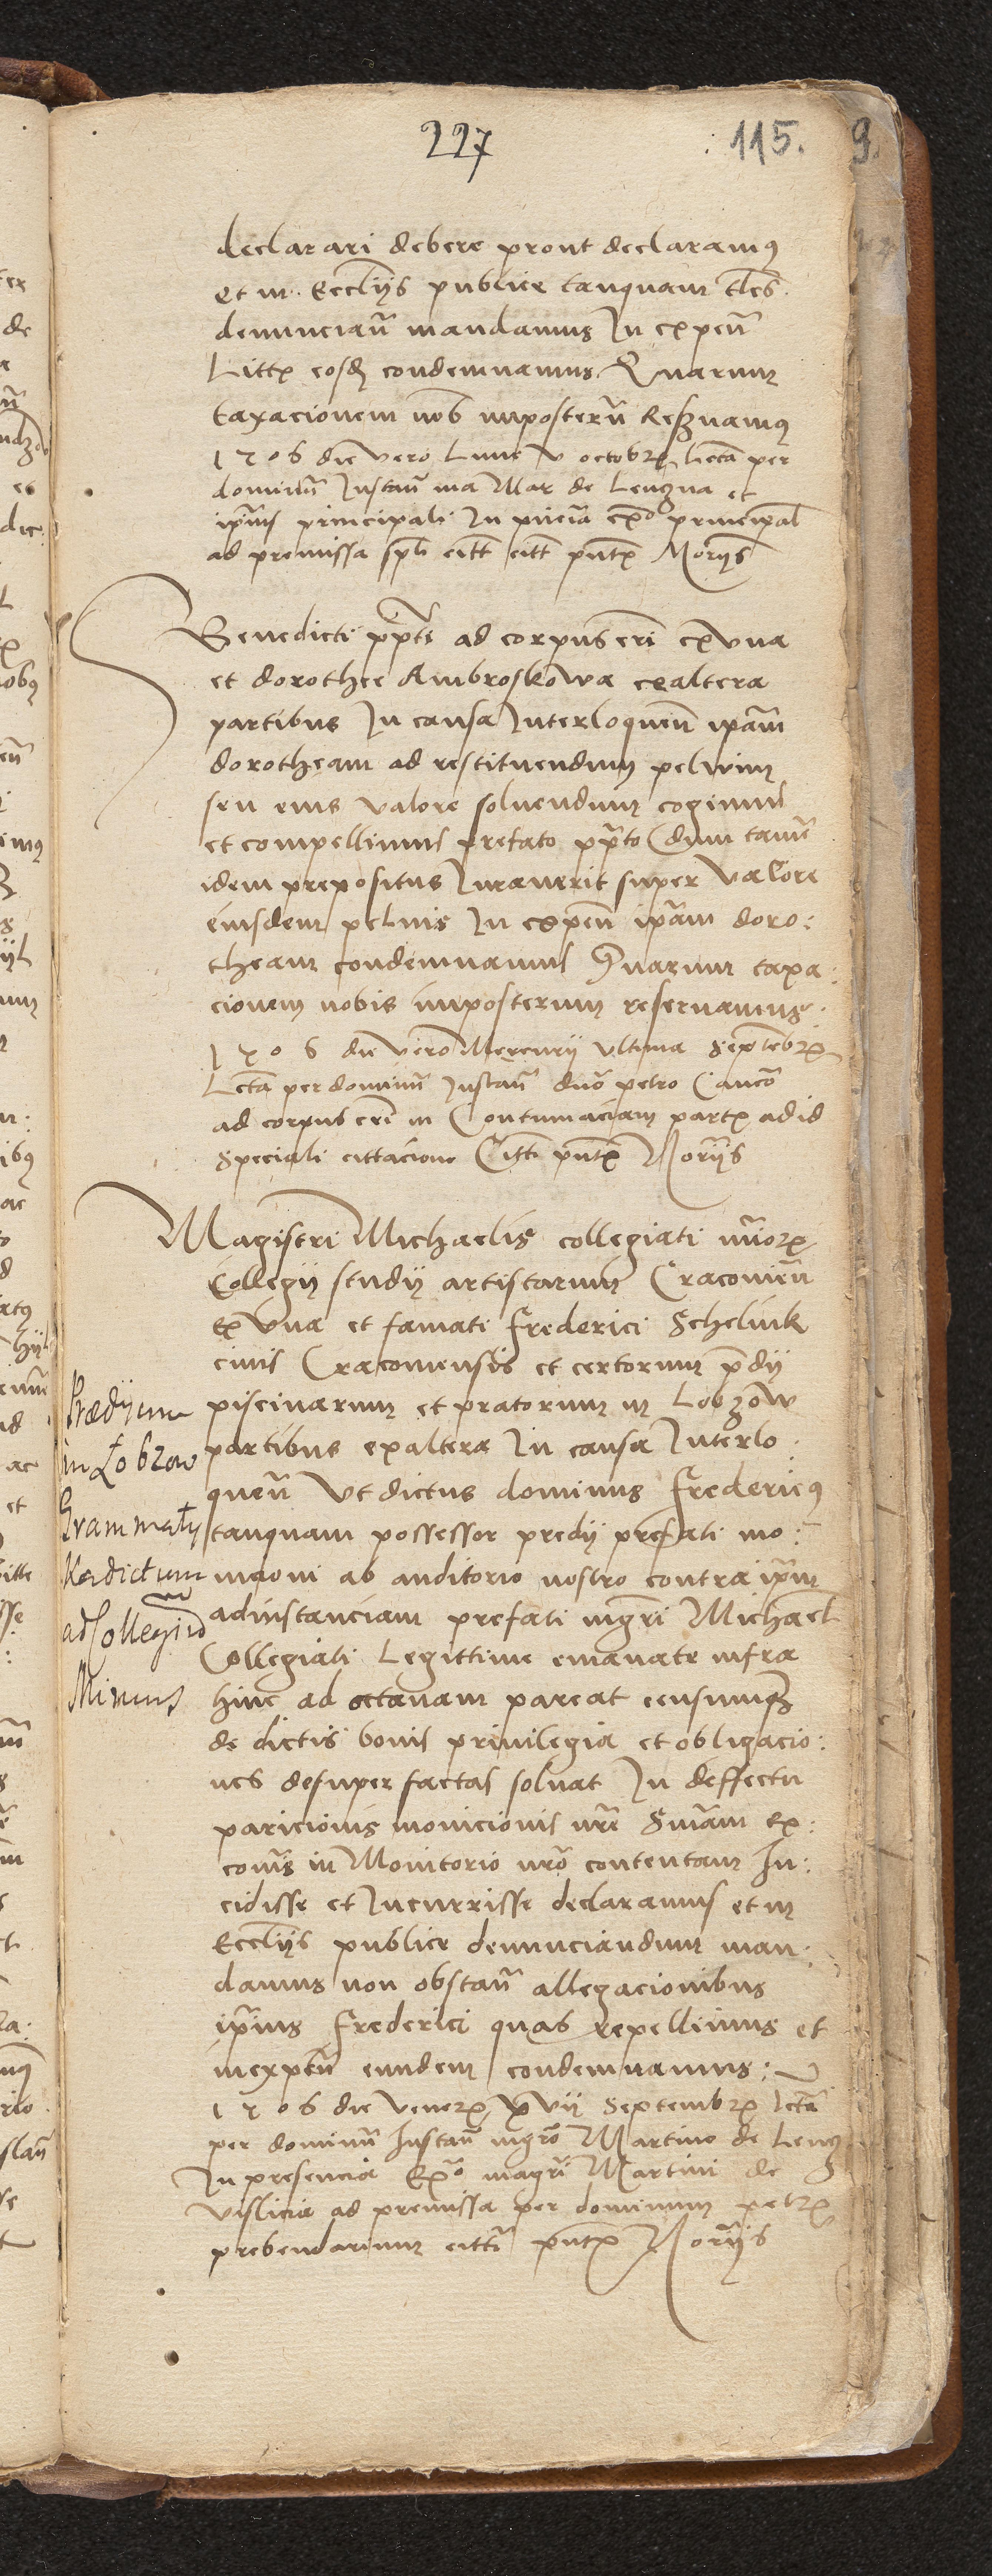 227
115.
9.
declarari debere prout declaramus
et in Ecclīis publice tanquam tles
denunciañ mandamus In expeñ
Littx eosdem condemnamus Quarum
taxacionem nob imposterū Reservamus
1506 die vero Lune v octobrx lecta per
dominū Instañ ma Mar de Lengna et
ipsius principali In pñcia exo principal
ad premissa spli citt citt pñtx Noriis
Benedicti ppti ad corpus cri ex vna
et dorothee Ambroskowa exaltera
partibus In causa Interloqueñ ipam
dorotheam ad restituendum peluim
seu eius valore soluendum cogimus
et compellimus prefato ppto dum tamē
idem prepositus Iurauerit super valore
eiusdem peluis In expeñ ipam doro:
theam condemnamus Quarum taxa:
cionem nobis imposterum reseruamus
1506 die vero Mercurii vltima Septēbrx
Lecta per dominū Instañ dno petro Canco
ad corpus cri in Contumaciam partx ad id
Speciali cittacione Citti pñtx Noriis
Magistri Michaelis collegiati miorx
Collegij studij artistarum Cracouieñ
ex vna et famati Frederici Schelink
ciuis Cracouiensis et certorum pdij
piscinarum et pratorum in Lobzow
partibus exaltera In causa Interlo:
queñ vt dictus dominus Fredericus
tanquam possessor predij prefati mo:
nicioni ab auditorio nostro contra ipm
adinstanciam prefati mgri Michael
Collegiati Legittime emanate infra
hinc ad octauam pareat censumqz
de dictis bonis priuilegia et obligacio:
nes desuper factas soluat In deffectu
paricionis monicionis nre Sniam Ex:
cois in Monitorio nro contentam In:
cidisse et Incurrisse declaramus et in
Ecclīis publice denunciandum man:
damus non obstañ allegacionibus
ipius Frederici quas repellimus et
inexpeñ eundem condemnamus:
1506 die venerx xvij Septembrx lecta
per dominū Instañ mgro Martino de Leng
In presencia Exo magri Martini de
vislicia ad premissa per dominum petrx
prebendarium citti pñtx Noriis
Prædijum
in Łobzow
Grammaty
kadictum
ad Collegiū
Minus